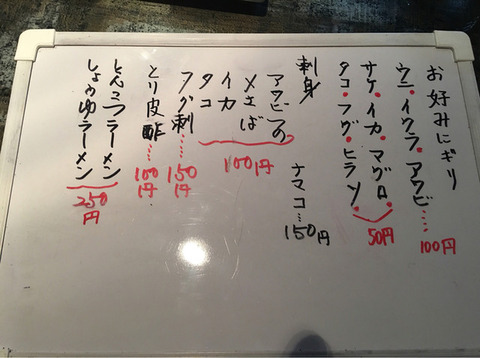 お好みにギリ
ウニ・イクラ・アワビ……100円
サケ・イカ・マグロ・
タコ・フグ・ヒラソ・
50円
刺身
ナマコ…150円
アワビつの
メさば
イカ
タコ
100円
フグ刺……150円
とり皮酢……100円
とんこつラーメン
しょうゆラーメン
250円